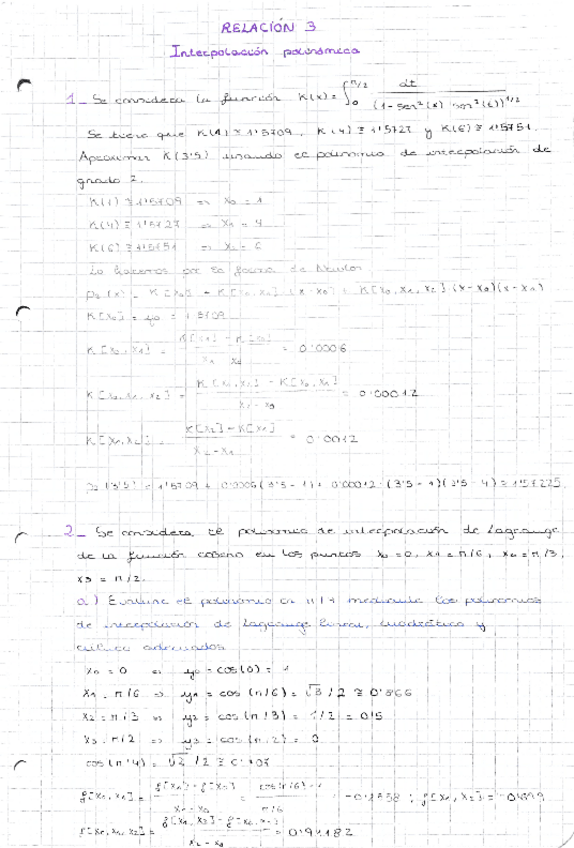 RELACIÓN 3
Interpolación polinómica
1_ Se considera la función K(x) = ∫₀^(π/2) dt / (1-sen²(x) sen²(t))^(1/2)
Se tiene que K(1) ≅ 1'5709, K(4) ≅ 1'5727 y K(6) ≅ 1'5751.
Aproximar K(3'5) usando el polinomio de interpolación de
grado 2.
K(1) ≅ 1'5709 => x₀ = 1
K(4) ≅ 1'5727 => x₁ = 4
K(6) ≅ 1'5751 => x₂ = 6
Lo hacemos por la forma de Newton
p₂(x) = K[x₀] + K[x₀,x₁](x-x₀) + K[x₀,x₁,x₂](x-x₀)(x-x₁)
K[x₀] = y₀ = 1'5709
K[x₀,x₁] = (K[x₁] - K[x₀]) / (x₁ - x₀) = 0'0006
K[x₀,x₁,x₂] = (K[x₁,x₂] - K[x₀,x₁]) / (x₂ - x₀) = 0'00012
K[x₁,x₂] = (K[x₂] - K[x₁]) / (x₂ - x₁) = 0'0012
p₂(3'5) = 1'5709 + 0'0006(3'5-1) + 0'00012·(3'5-1)(3'5-4) ≅ 1'57225
2_ Se considera el polinomio de interpolación de Lagrange
de la función coseno en los puntos x₀=0, x₁=π/6, x₂=π/3,
x₃ = π/2.
a) Evalúe el polinomio en π/4 mediante los polinomios
de interpolación de Lagrange lineal, cuadrático y
cúbico adecuados
x₀ = 0 => y₀ = cos(0) = 1
x₁ = π/6 => y₁ = cos(π/6) = √3/2 ≅ 0'866
x₂ = π/3 => y₂ = cos(π/3) = 1/2 = 0'5
x₃ = π/2 => y₃ = cos(π/2) = 0
cos(π/4) = √2/2 ≅ 0'707
= -0'2558 ; f[x₁,x₂] =